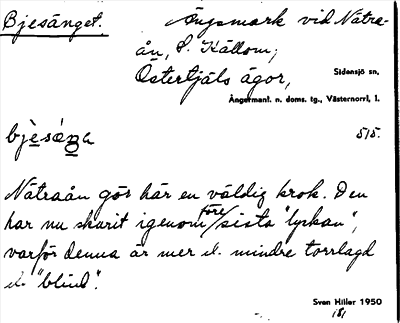 Bjesänget. Ängsmark vid Nätra-
ån, S. Källom;
Östertjäls ägor,
Sidensjö sn,
Ångermanl. n. doms. tg., Västernorrl, l.
515.
Nätraån gör här en väldig krok. Den
har nu skurit igenom före/sista "lyckan",
varför denna är mer el. mindre torrlagd
el. "blind".
Sven Hiller 1950